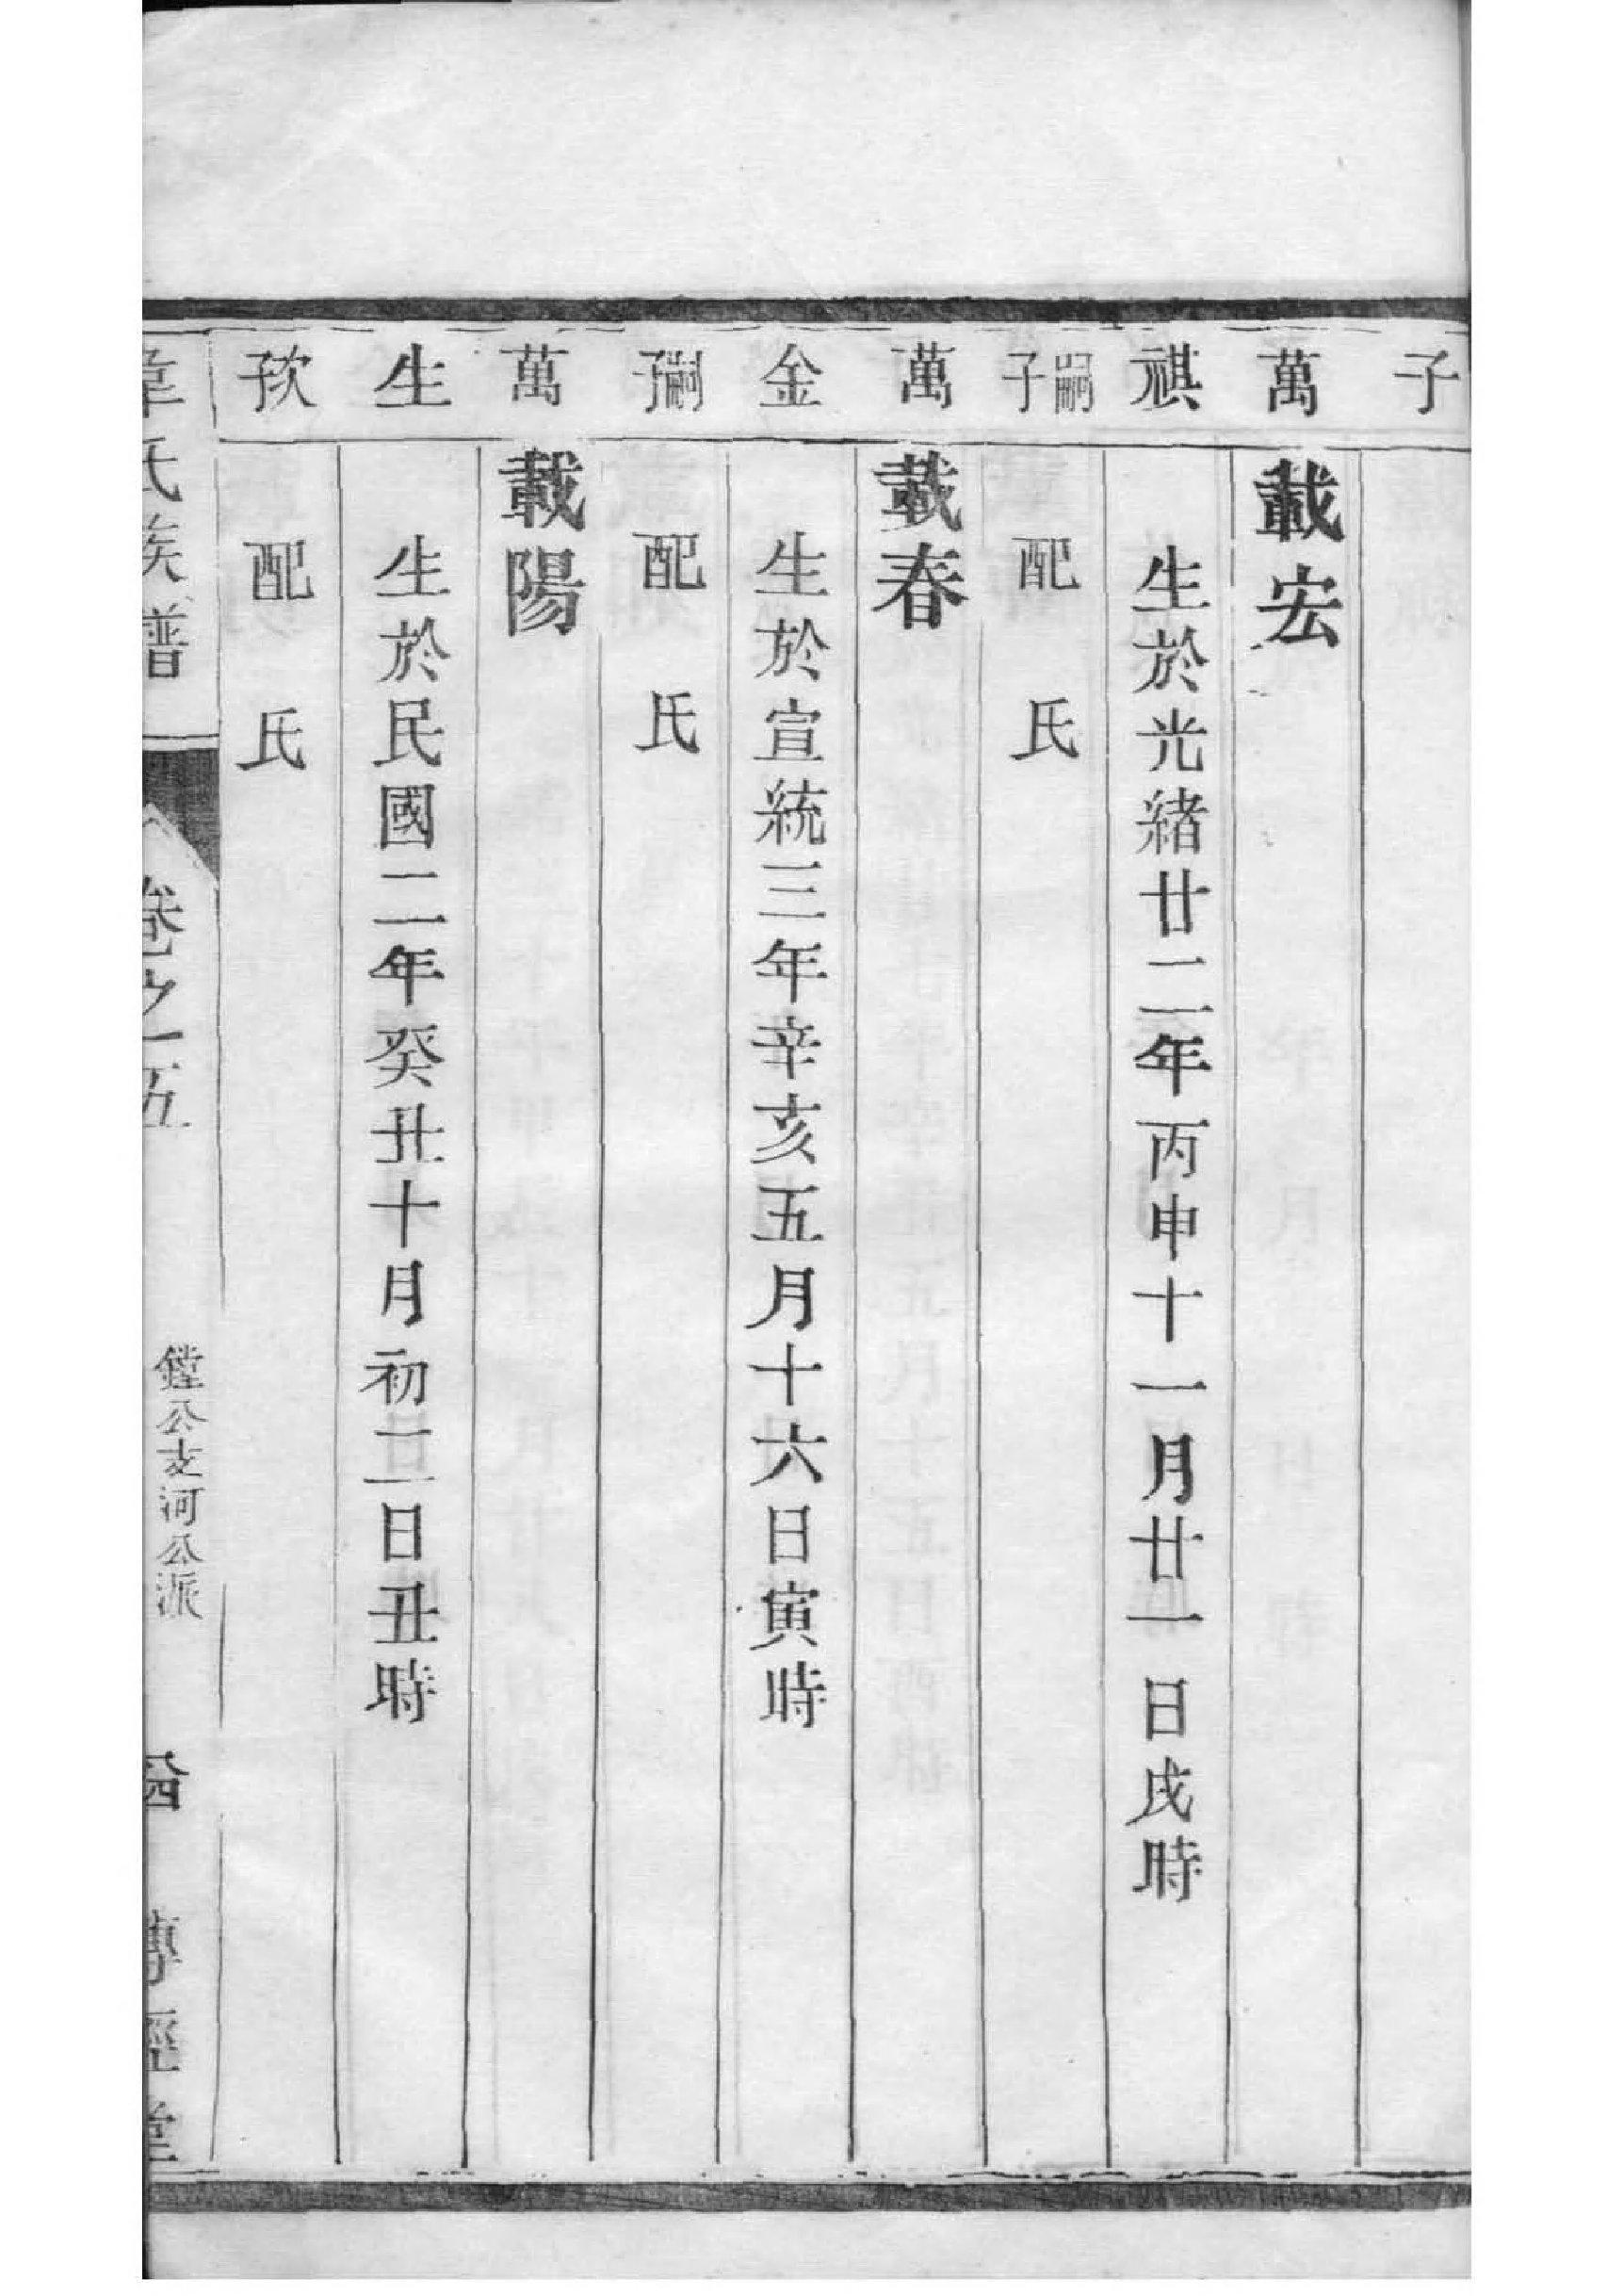 子
萬 載宏
祺 生於光緒廿二年丙申十一月廿一日戌時
嗣子 配 氏
萬 載春
金 生於宣統三年辛亥五月十六日寅時
嗣子 配 氏
萬 載陽
生 生於民國二年癸丑十月初二日丑時
次子 配 氏
韋氏族譜 卷之五 鏜公支河公派 傳經堂